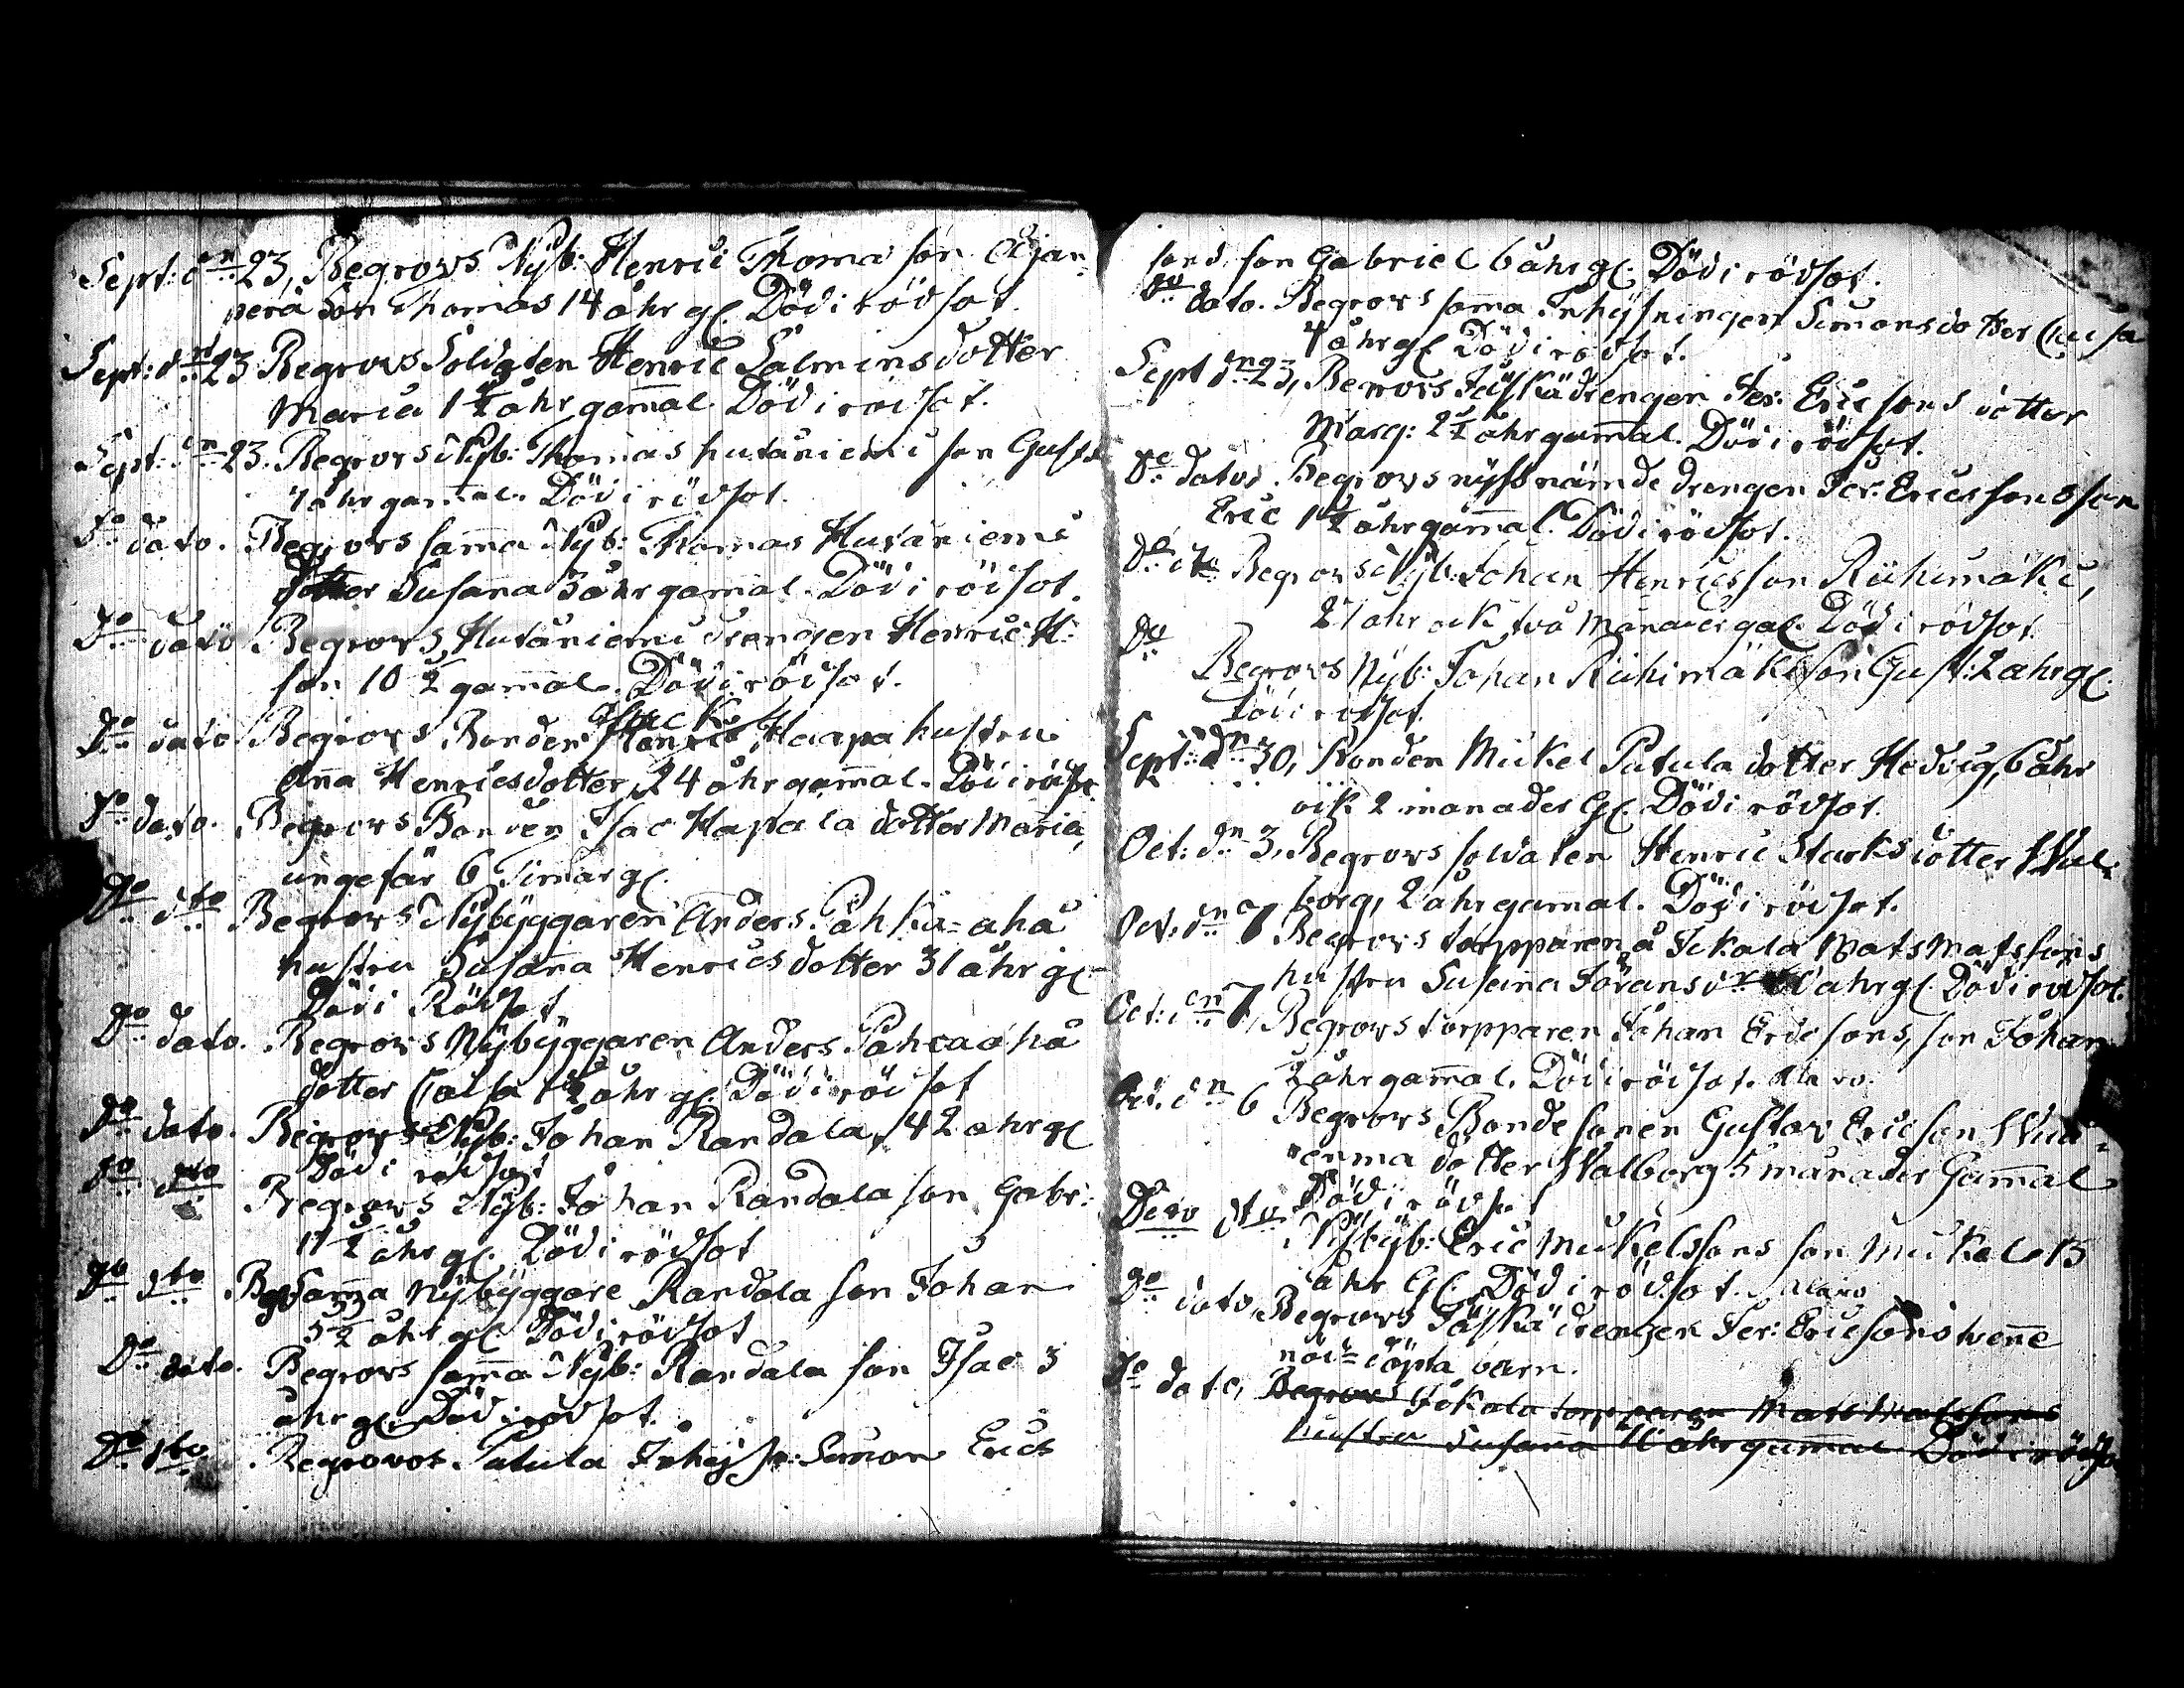 Sept: dn 23, Begrovs Nyb: Henric Thoma son Ajan
perä son Thomas 14 åhr gl. Död i rödsot.
Sept: dn 23 Begrovs Soldaten Henric Salmins dotter
Maria 1 1/2 åhr gamal. Död i rödsot.
Sept: dn 23. Begrovs Nyb: Thomas hutaniemi son Gust
7 åhr gamal. Död i rödsot.
Do dato. Begrovs sama Nyb: Thomas Hutaniemi
dotter Susana 3 åhr gamal. Död i rödsot.
Do dato Begrovs Hutaniemi drengen Henric H:
son 10 1/2 gamal. Död i rödsot.
Do dato Begrovs Bonden Isack Haapa hustru
Ana Henricsdotter 24 åhr gamal. Död i
Do dato. Begrovs Bonden Isac Hapala dotter Maria,
ungefär 6 Timar gl.
Do dto Begrovs Nybyggaren Anders Pahka=aha
hustru Susana Henricsdotter 31 åhr gl
Död i Rödsot
Do dato. Begrovs Nybyggaren Anders Pahcaaha
dotter Caisa 1 1/2 åhr gl. Död i rödsot
Do dato. Begrovs Nyb: Johan Randala, 42 ahr gl
Död i rödsot
Do dto Begrovs Nyb: Johan Randala son Gabr:
11 1/2 åhr gl. Död i rödsot
Do dto Bgr Sama Nybyggare Randala son Johan
5 1/2 åhr gl. Död i rödsot
Do dato. Begrovs sama Nyb: Randala son Isac 3
åhr gl. Död i rödsot.
Do dto Begrovs Patula Inhys: Simon Erics
sons son Gabriel 6 åhr gl. Död i rödsot.
do dato. Begrovs sama Inhysningen Simons dotter Caisa
4 åhr gl. Död i rödsot.
Sept dn 23, Begrovs Jäskä drengen Jer: Ericsons dotter
Marg: 2 1/2 åhr gamal. Död i rödsot.
Do dato. Begrovs nyssnämde drengen Jer: Ericssons son
Eric 1 1/2 åhr gamal. Död i rödsot.
Do dto Begrovs Nyb: Johan Henricsson Riihimäki,
27 åhr ock två Månader gal. Död i rödsot.
Do
Begrovs Nyb: Johan Riihimäki son Gust: 2 ahr gl
Död i rödsot.
Sept: dn 30, Bonden Mickel Patula dotter Hedvig, 6 åhr
ock 2 månader Gl. Död i rödsot.
Oct: dn 3, Begrovs soldaten Henric Starks dotter Wal:
borg, 2 åhr gamal. Död i rödsot.
Oct: dn 7 Begrovs torpparen å Jokala Mats Matssons
hustru Susana Jöransdr åhr gl. Död i rödsot.
Oct: dn 7, Begrovs torpparen Johan Ericsons, son Johan
2 åhr gamal. Död i rödsot.
Oct. dn 6 Begrovs Bondesonen Gustav Ericson
dotter Walborg 5 månader Gamal
Död i rödsot
Dato dto Nyb: Eric Mickelssons son Mickel 13
åhr Gl. Död i rödsot.
do dato, Begrovs Jäskä drengen Jer: Ericsons twenne
nöd döpta barn.
Do dato, Begrovs Jokala torpparen Mats Matssons
hustru Susana åhr gamal Död i rödso